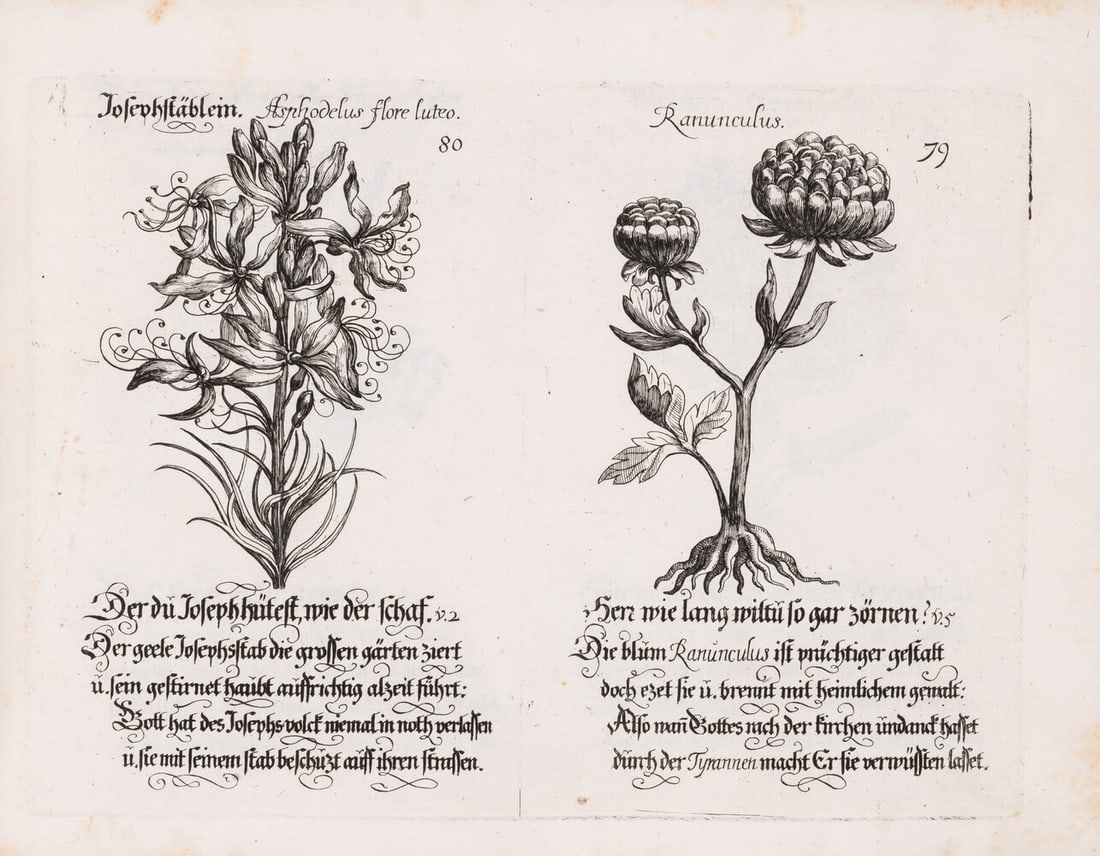 Josephstäblein. Asphodelus flore luteo.
80
Der dŭ Joseph hütest, wie der schaf. v.2
Der geele Josephsstab die grossen gärten ziert
ŭ. sein gestirnet haŭbt aŭffrichtig alzeit führt:
Gott hat des Josephs volck niemal in noth verlassen
ŭ. sie mit seinem stab beschüzt aŭff ihren strassen.
Ranunculus.
79
Herr wie lang wiltŭ so gar zörnen? v.5
Die blŭm Ranŭnculus ist prüchtiger gestalt
doch ezet sie ŭ. brennt mit heimlichem gewalt:
Also wan̄ Gottes rach der kirchen ŭndanck hasset
dŭrch der Tyrannen macht Er sie verwüsten lasset.